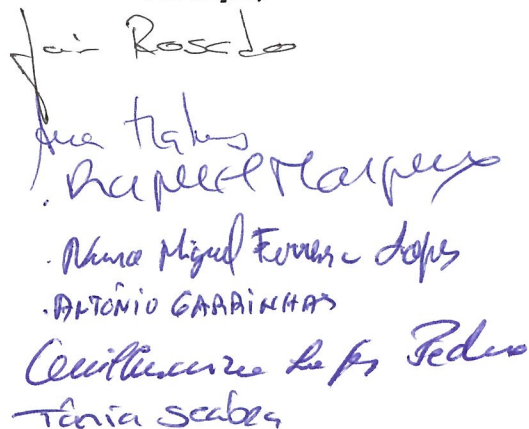 Rosado
Ana
Raphael Marques
Nuno Miguel Ferreira Lopes
ANTÓNIO GARRINHAS
Guilhermina Lopes Pedro
Tânia Seabra